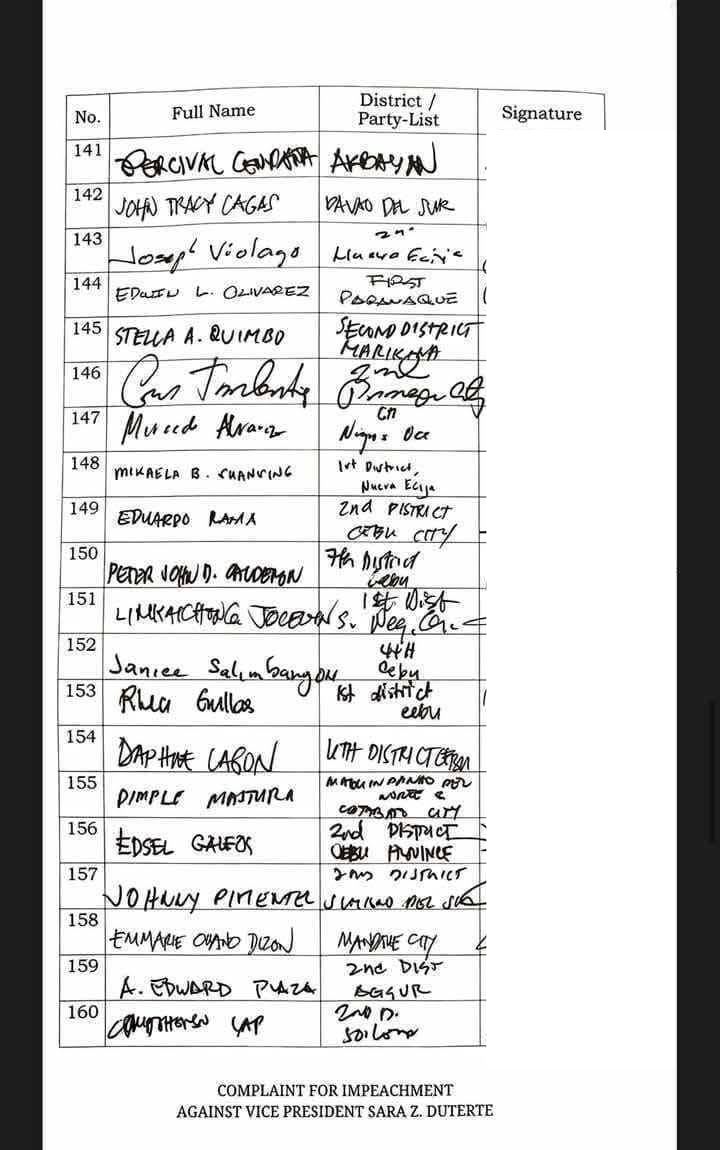 No.
Full Name
District /
Party-List
Signature
141 PERCIVAL CENDAÑA AKBAYAN
142 JOHN TRACY CAGAS DAVAO DEL SUR
143 Joseph Violago 2nd
Nueva Ecija
144 EDWIN L. OLIVAREZ FIRST
PARANAQUE
145 STELLA A. QUIMBO SECOND DISTRICT
MARIKINA
146 2nd
147 Alvarez
Negros Occ
148 MIKAELA B. SUANSING 1st District,
Nueva Ecija
149 EDUARDO RAMA 2nd DISTRICT
CEBU CITY
150 PETER JOHN D. CALDERON 7th District
Cebu
151 LIMKAICHONG JOCELYN S. 1st Dist
Neg. Or.
152 Janice Salimbangon 4tH
Cebu
153 Rhea Gullas 1st district
cebu
154 DAPHNE LAGON 6TH DISTRICT CEBU
155 DIMPLE MASTURA MAGUINDANAO DEL
NORTE &
COTABATO CITY
156 EDSEL GALEOS 2nd DISTRICT
CEBU PROVINCE
157 JOHNNY PIMENTEL 2ND DISTRICT
SURIGAO DEL SUR
158 EMMARIE OUANO DIZON MANDAUE CITY
159 A. EDWARD PLAZA 2nd DIST
AGSUR
160 YAP 2ND D.
COMPLAINT FOR IMPEACHMENT
AGAINST VICE PRESIDENT SARA Z. DUTERTE